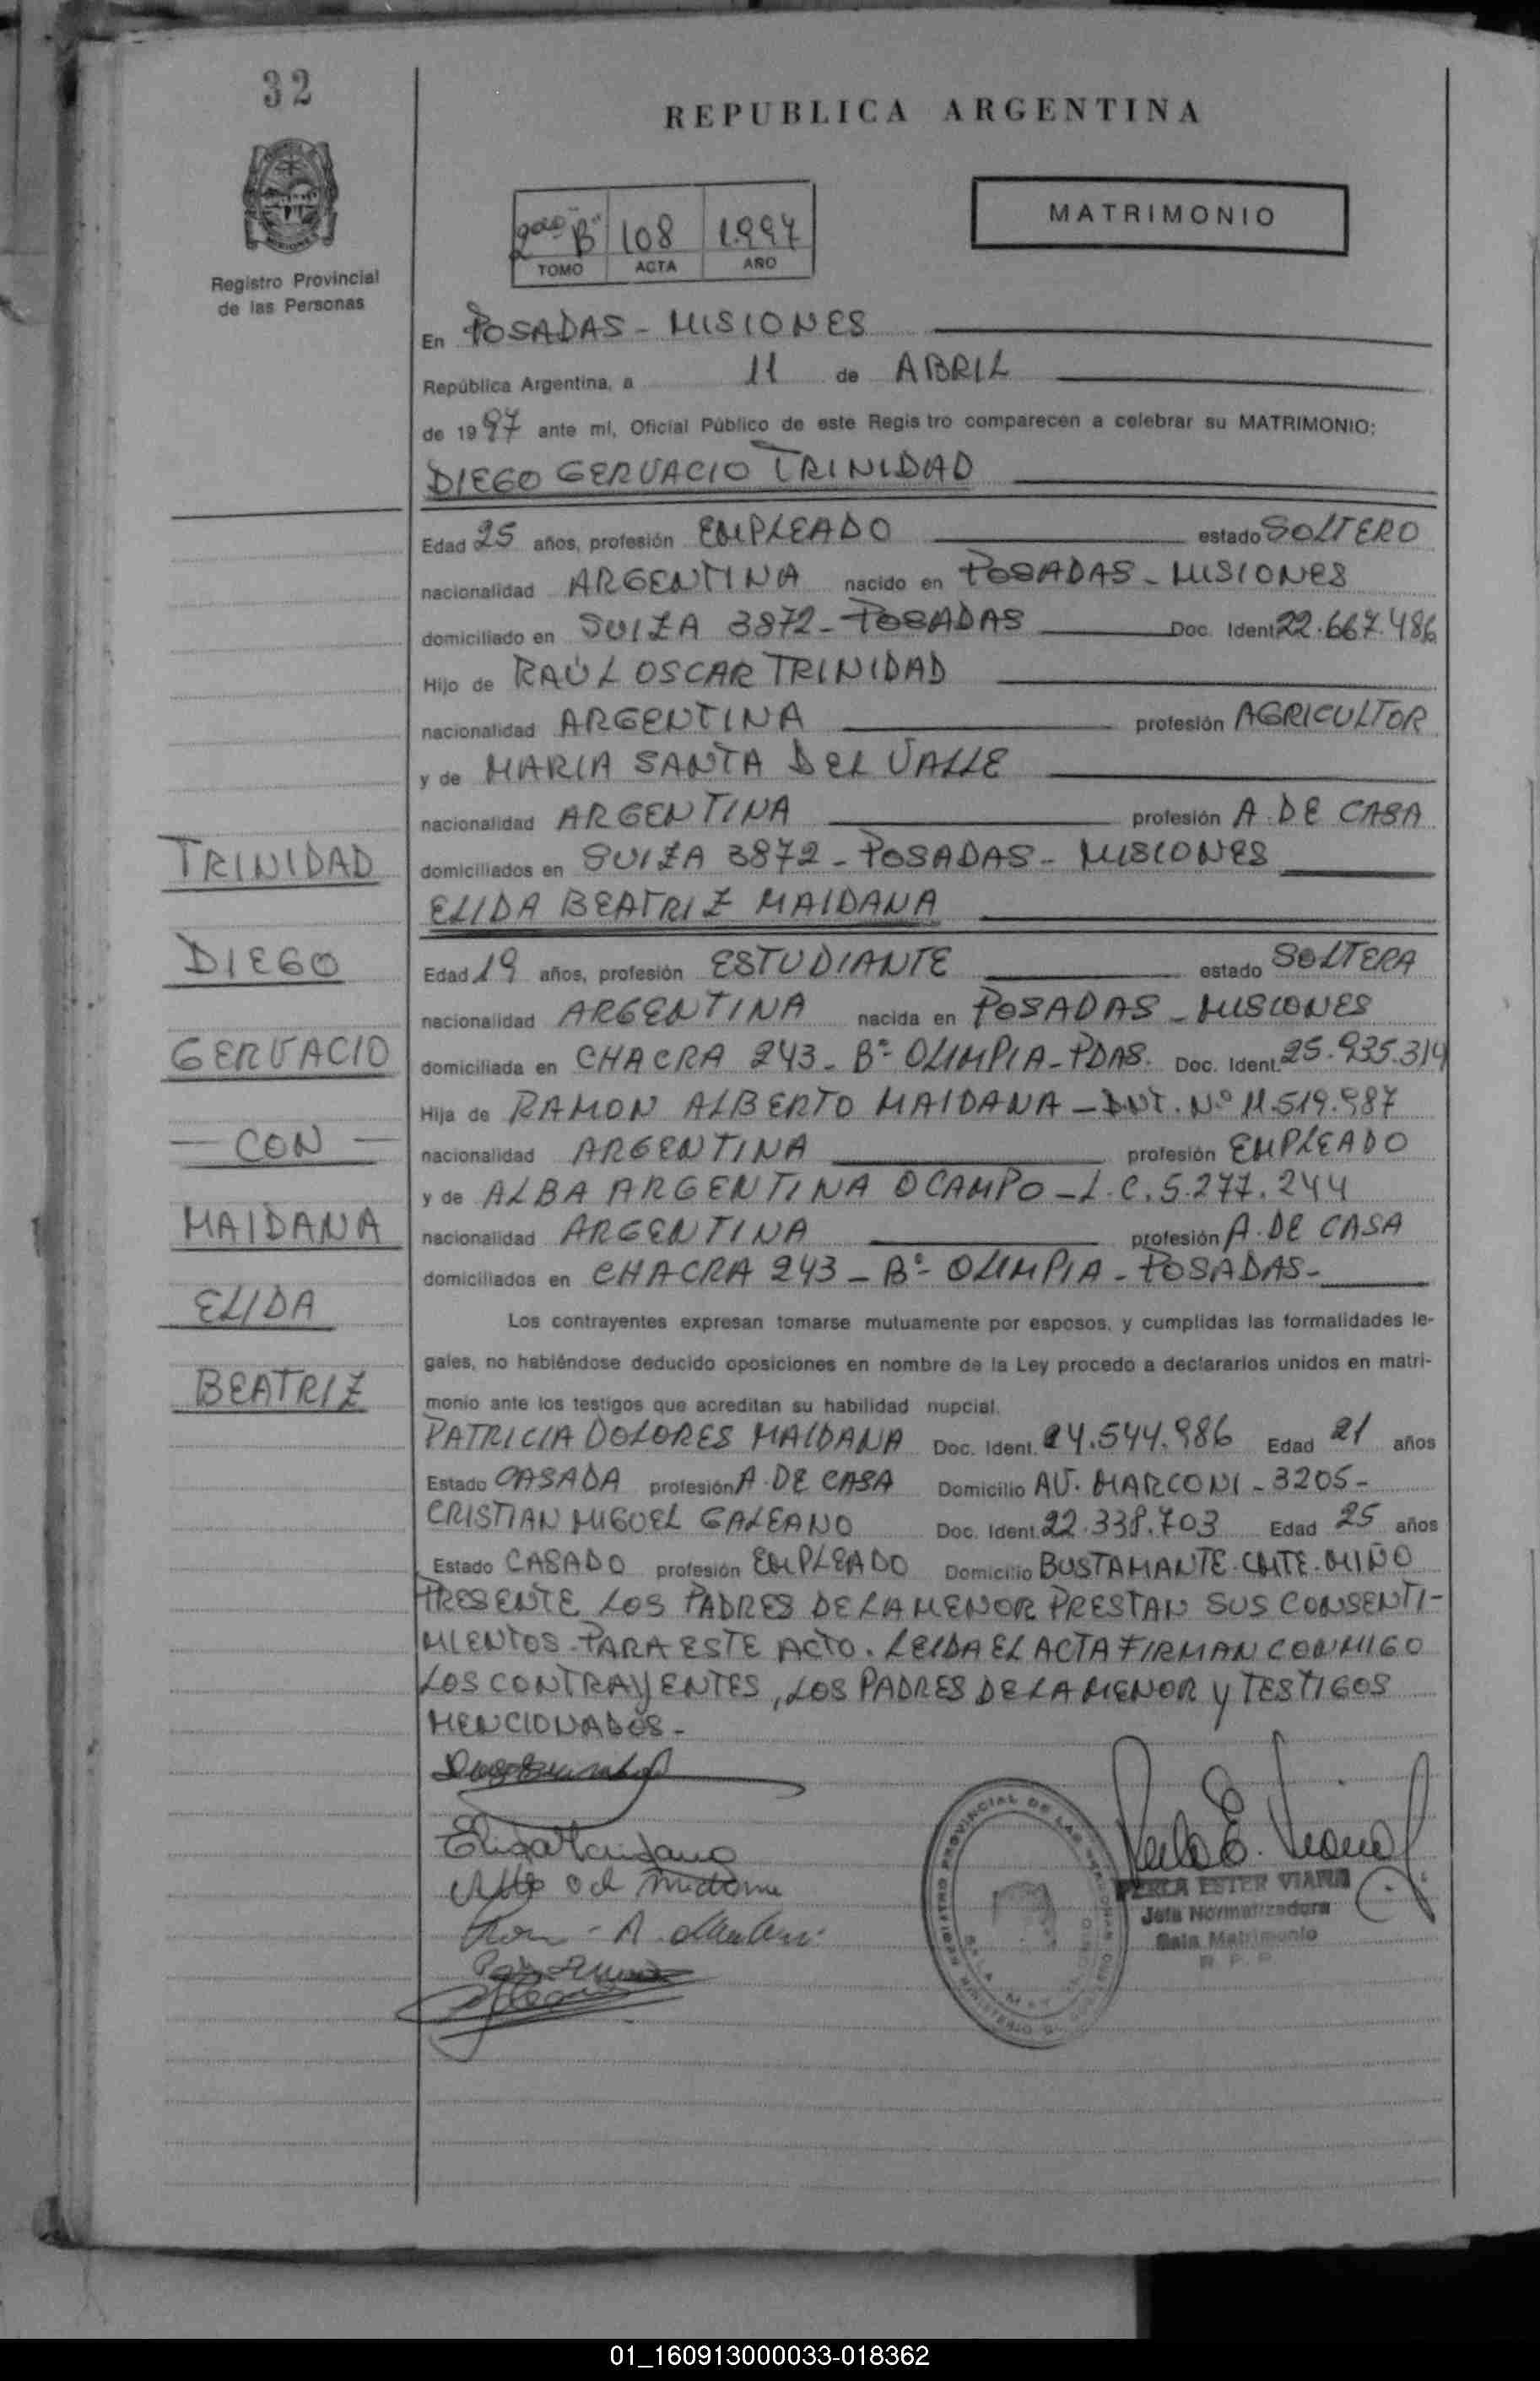 32
REPUBLICA ARGENTINA
MATRIMONIO
2do "B" 108 1.997
TOMO ACTA AÑO
Registro Provincial
de las Personas
En POSADAS - MISIONES
República Argentina, a 11 de ABRIL
de 1997 ante mí, Oficial Público de este Regis tro comparecen a celebrar su MATRIMONIO:
DIEGO GERVACIO TRINIDAD
Edad 25 años, profesión EMPLEADO estado SOLTERO
nacionalidad ARGENTINA nacido en POSADAS - MISIONES
domiciliado en SUIZA 3872 - POSADAS Doc. Ident. 22.667.486
Hijo de RAÚL OSCAR TRINIDAD
nacionalidad ARGENTINA profesión AGRICULTOR
y de MARIA SANTA DEL VALLE
nacionalidad ARGENTINA profesión A. DE CASA
domiciliados en SUIZA 3872 - POSADAS - MISIONES
ELIDA BEATRIZ MAIDANA
Edad 19 años, profesión ESTUDIANTE estado SOLTERA
nacionalidad ARGENTINA nacida en POSADAS - MISIONES
domiciliada en CHACRA 243 - Bº OLIMPIA - PDAS. Doc. Ident. 25.935.314
Hija de RAMON ALBERTO MAIDANA - DNI. Nº 11.519.987
nacionalidad ARGENTINA profesión EMPLEADO
y de ALBA ARGENTINA OCAMPO - L.C. 5.277.244
nacionalidad ARGENTINA profesión A. DE CASA
domiciliados en CHACRA 243 - Bº - OLIMPIA - POSADAS -
Los contrayentes expresan tomarse mutuamente por esposos, y cumplidas las formalidades le-
gales, no habiéndose deducido oposiciones en nombre de la Ley procedo a declararlos unidos en matri-
monio ante los testigos que acreditan su habilidad nupcial.
PATRICIA DOLORES MAIDANA Doc. Ident. 24.544.986 Edad 21 años
Estado CASADA profesión A. DE CASA Domicilio AV. MARCONI - 3205 -
CRISTIAN MIGUEL GALEANO Doc. Ident. 22.338.703 Edad 25 años
Estado CASADO profesión EMPLEADO Domicilio BUSTAMANTE. CMTE. MIÑO
PRESENTE LOS PADRES DE LA MENOR PRESTAN SUS CONSENTI-
MIENTOS PARA ESTE ACTO. LEIDA EL ACTA FIRMAN CONMIGO
LOS CONTRAYENTES, LOS PADRES DE LA MENOR Y TESTIGOS
MENCIONADOS -
TRINIDAD
DIEGO
GERVACIO
- CON -
MAIDANA
ELIDA
BEATRIZ
REGISTRO PROVINCIAL DE LAS
PERLA ESTER VIANA
Jefa Normatizadora
Sala Matrimonio
R. P. P.
01_160913000033-018362